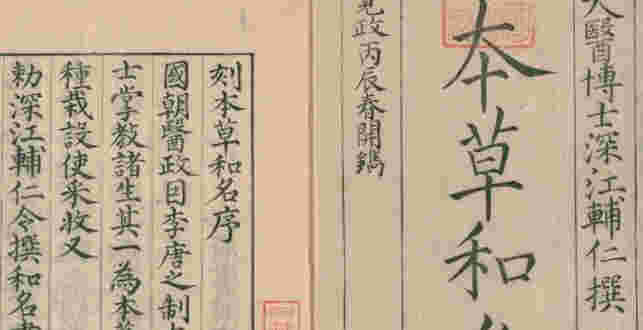 大醫博士深江輔仁撰
本草和
政丙辰春開鐫
刻本草和名序
國朝醫政因李唐之制
士掌教諸生其一為本草
種栽設使采收又
勅深江輔仁令撰和名